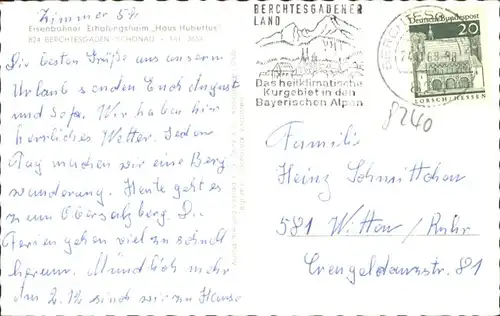 Zimmer 54
Eisenbahner Erholungsheim „Haus Hubertus"
824 BERCHTESGADEN-SCHÖNAU
Die besten Grüße aus unserem
Urlaub senden Euch August
und Sofa. Wir haben hier
herrliches Wetter. Jeden
Tag machen wir eine Berg
wanderung. Heute geht es
zum Obersalzberg. Die
Ferien gehen viel zu schnell
herum. Mündlich mehr
Am 2.12 sind wir zu Hause
BERCHTESGADENER
LAND
Das heilklimatische
Kurgebiet in den
Bayerischen Alpen
Deutsche Bundespost
20
LORSCH/HESSEN
8240
Familie
Heinz Schmittchau
581 Witten/Ruhr
Crengeldanzstr. 81